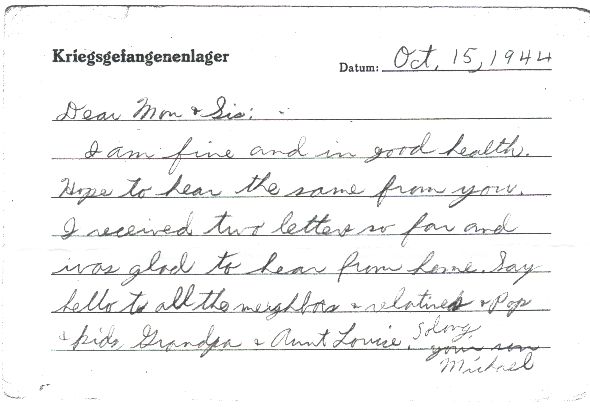 Kriegsgefangenenlager
Datum: Oct. 15, 1944
Dear Mom & Sis:
I am fine and in good health.
Hope to hear the same from you.
I received two letters so far and
was glad to hear from home. Say
hello to all the neighbors & relatives & Pop
& kids Grandpa & Aunt Louise. Solong
your son
Michael